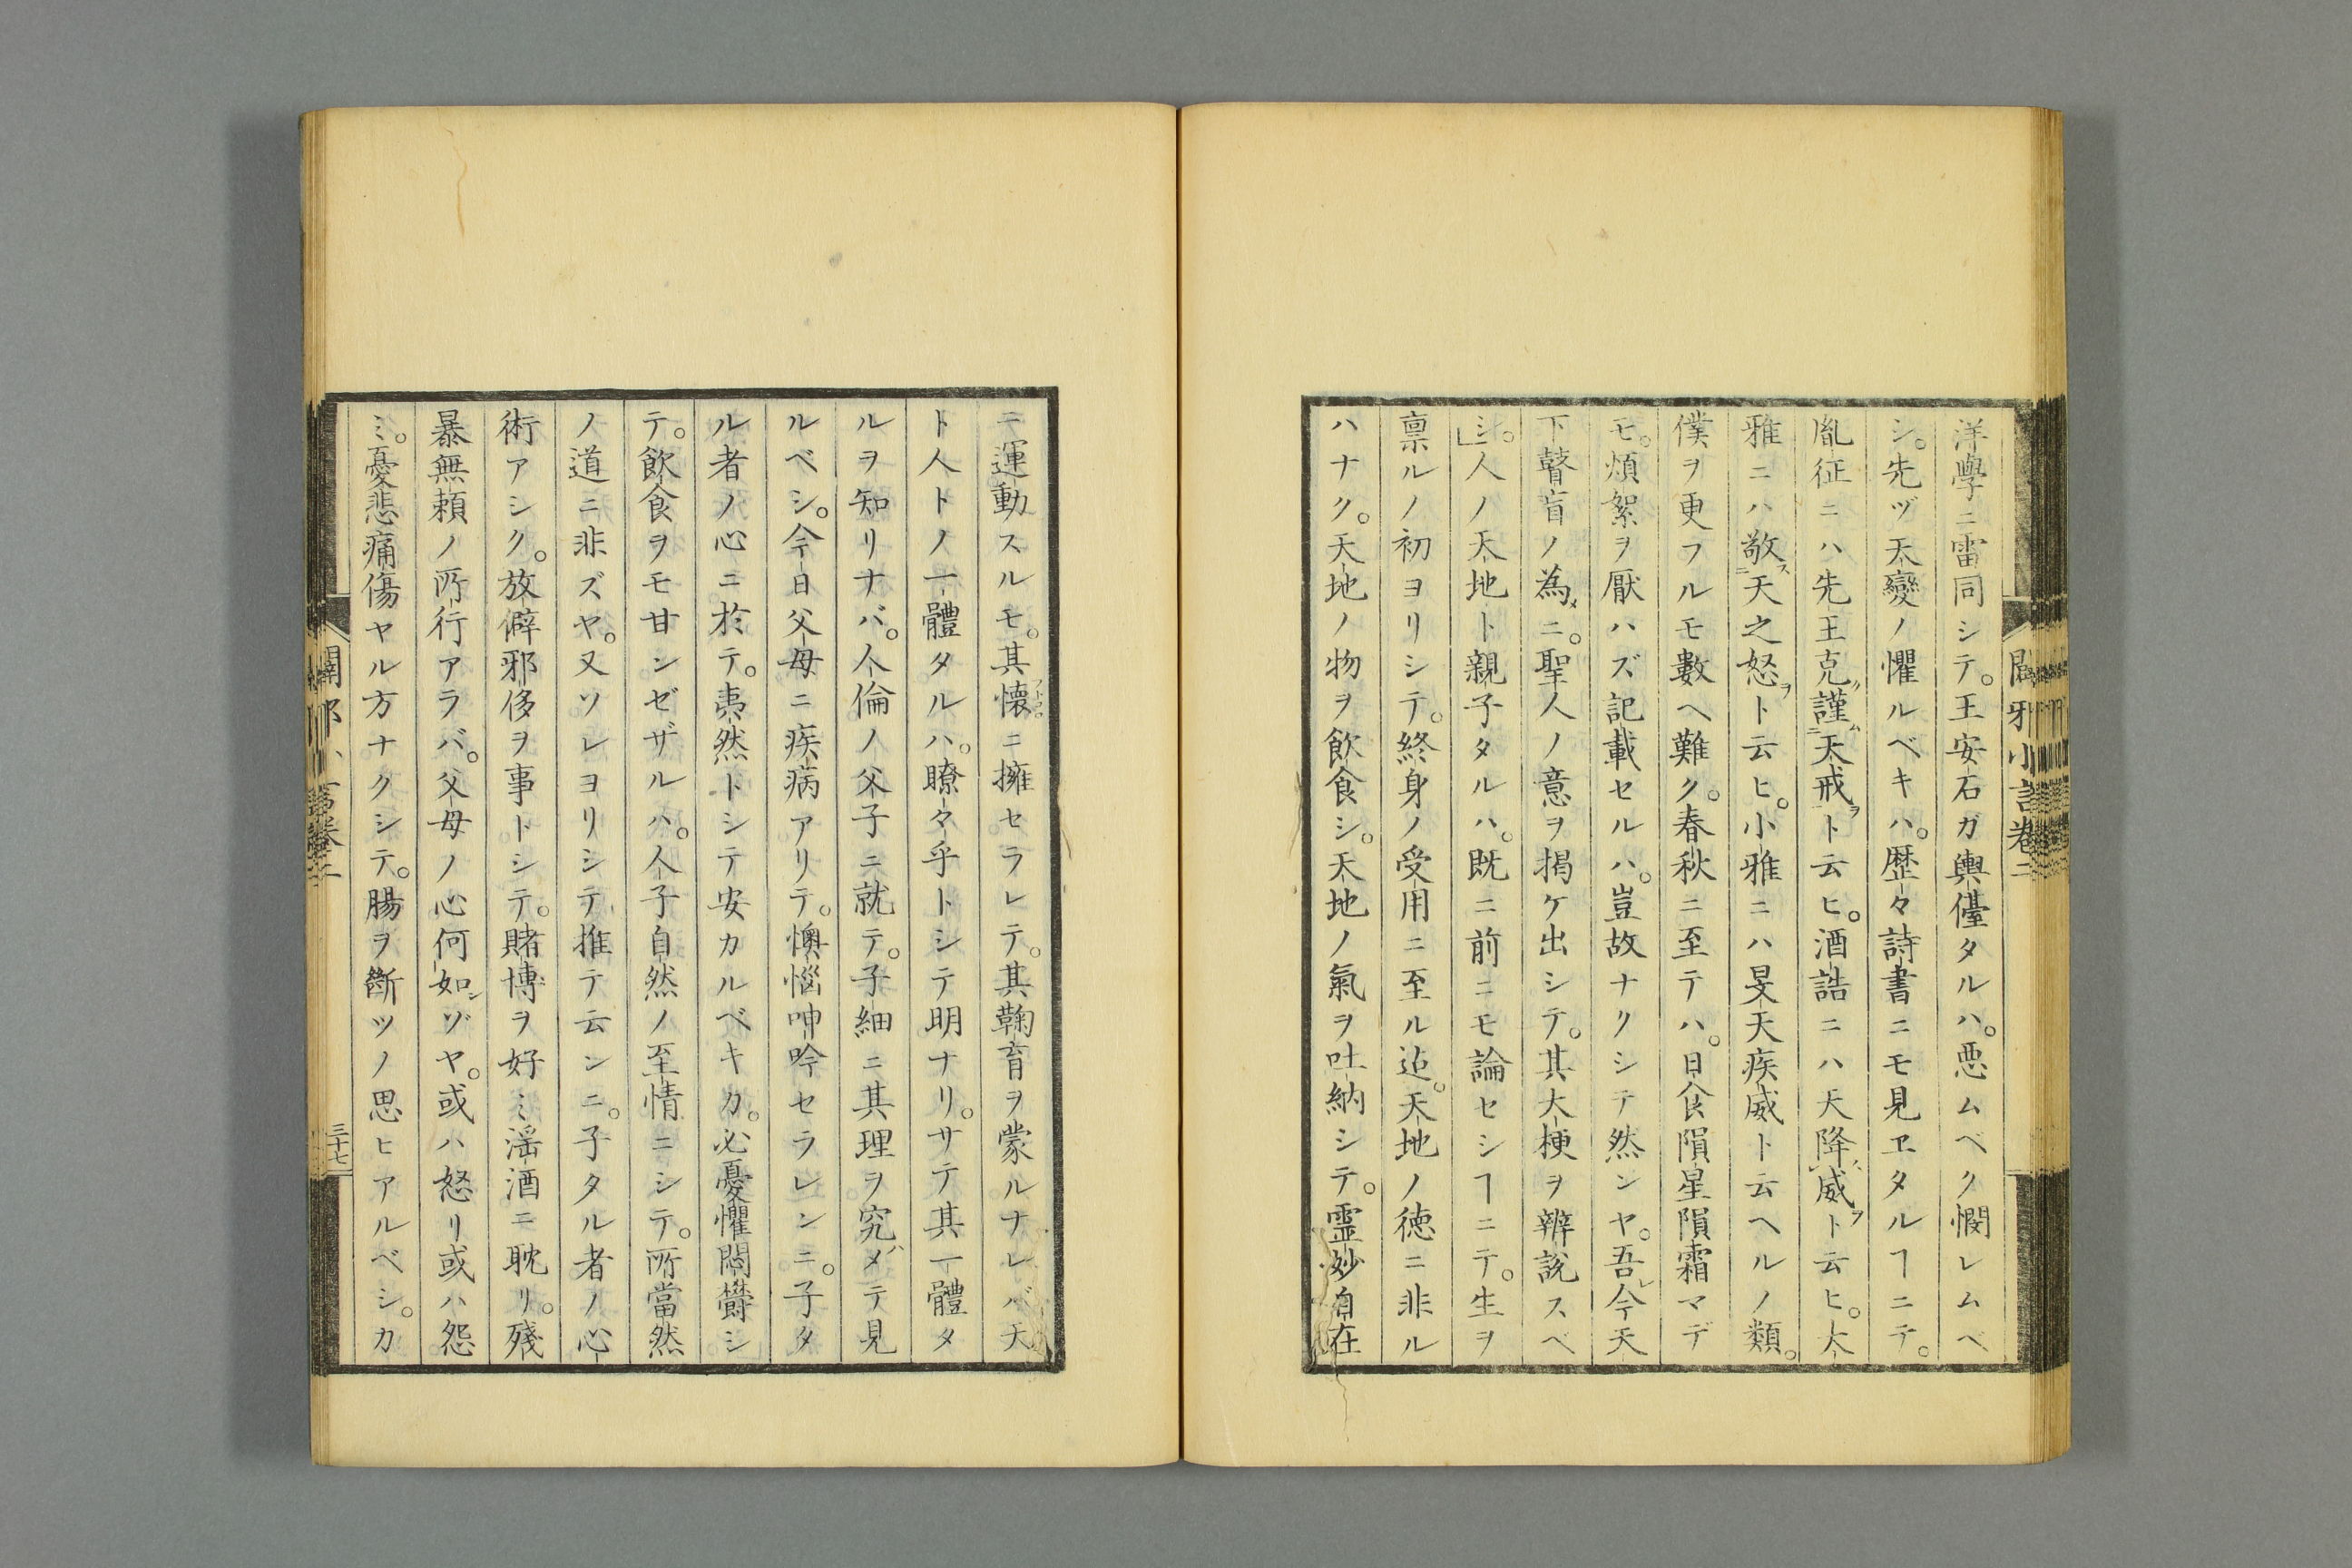 洋學ニ雷同シテ。王安石ガ輿儓タルハ。悪ムベク憫レムベ
シ。先ヅ天變ノ懼ルベキハ。歴々詩書ニモ見エタルヿニテ。
胤征ニハ先王克謹天戒ヲト云ヒ。酒誥ニハ天降威ヲト云ヒ。大
雅ニハ敬天之怒ヲト云ヒ。小雅ニハ旻天疾威ト云ヘルノ類。
僕ヲ更フルモ數ヘ難ク。春秋ニ至テハ。日食隕星隕霜マデ
モ。煩絮ヲ厭ハズ記載セルハ。豈故ナクシテ然ンヤ。吾今天
下瞽盲ノ為メニ。聖人ノ意ヲ掲ケ出シテ。其大梗ヲ辨説スベ
シ。」人ノ天地ト親子タルハ。既ニ前ニモ論セシヿニテ。生ヲ
禀ルノ初ヨリシテ。終身ノ受用ニ至ル迠。天地ノ徳ニ非ル
ハナク。天地ノ物ヲ飲食シ。天地ノ氣ヲ吐納シテ。霊妙自在
ニ運動スルモ。其懐ニ擁セラレテ。其鞠育ヲ蒙ルナレバ天
ト人トノ一體タルハ。瞭々乎トシテ明ナリ。サテ其一體タ
ルヲ知リナバ。人倫ノ父子ニ就テ。子細ニ其理ヲ究メテ見
ルベシ。今日父母ニ疾病アリテ。懊惱呻吟セラレンニ。子タ
ル者ノ心ニ於テ。夷然トシテ安カルベキカ。必憂懼悶欝シ
テ。飲食ヲモ甘ンゼザルハ。人子自然ノ至情ニシテ。所當然
ノ道ニ非ズヤ。又ソレヨリシテ推テ云ンニ。子タル者ノ心
術アシク。放僻邪侈ヲ事トシテ。賭博ヲ好ミ淫酒ニ耽リ。殘
暴無頼ノ所行アラバ。父母ノ心何如ンゾヤ。或ハ怒リ或ハ怨
ミ。憂悲痛傷ヤル方ナクシテ。腸ヲ斷ツノ思ヒアルベシ。カ
三十七